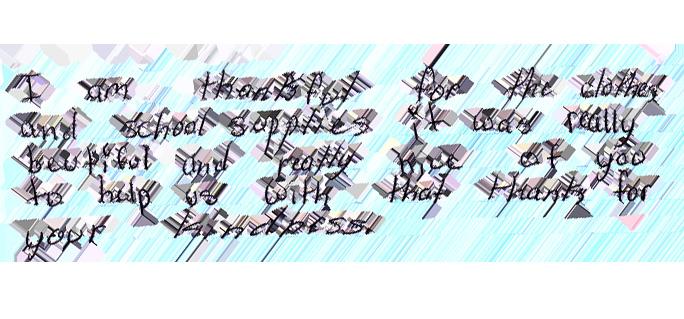 I am thankful for the clothes
and school supplies It was really
beautiful and really nice of you
to help us with that thanks for
your kindness.